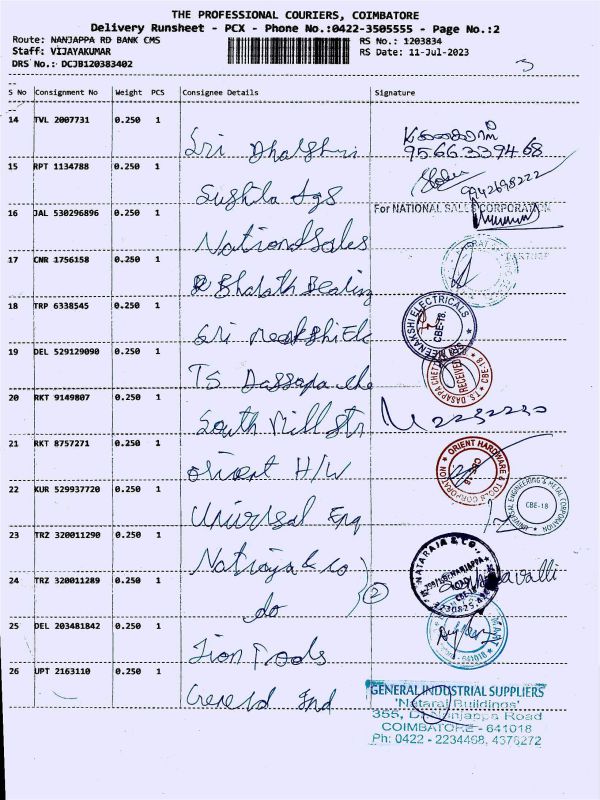 THE PROFESSIONAL COURIERS, COIMBATORE
Delivery Runsheet - PCX - Phone No.:0422-3505555 - Page No.:2
Route: NANJAPPA RD BANK CMS RS No.: 1203834
Staff: VIJAYAKUMAR RS Date: 11-Jul-2023
DRS No.: DCJB120383402
3
S No Consignment No Weight PCS Consignee Details Signature
14 TVL 2007731 0.250 1 Sri
9566339468
15 RPT 1134788 0.250 1 Sushila Ags
9942698222
16 JAL 530296896 0.250 1 National Sales
For NATIONAL SALES CORPORATION
17 CNR 1756158 0.250 1 Bharath Bearing
PARTNER
18 TRP 6338545 0.250 1 Sri Meenakshi Ele
MEENAKSHI ELECTRICALS
CBE-18.
19 DEL 529129090 0.250 1 TS Dassapa Che
T.S. DASAPPA CHETTIAR
RECEIVED
CBE-18
20 RKT 9149807 0.250 1 South Mill Str
21 RKT 8757271 0.250 1 Orient H/W
ORIENT HARDWARE & TOOLS CORPORATION
CBE-18
22 KUR 529937720 0.250 1 Universal Eng
UNIVERSAL ENGINEERING & METAL CORPORATION
CBE-18
23 TRZ 320011290 0.250 1 Natraja & co
NATARAJA & CO.,
24 TRZ 320011289 0.250 1 do
2
25 DEL 203481842 0.250 1 Lion Tools
641018
26 UPT 2163110 0.250 1 General Ind
GENERAL INDUSTRIAL SUPPLIERS
'Nataraj Buildings'
355, Dr. Nanjappa Road
COIMBATORE - 641018
Ph: 0422 - 2234468, 4376272